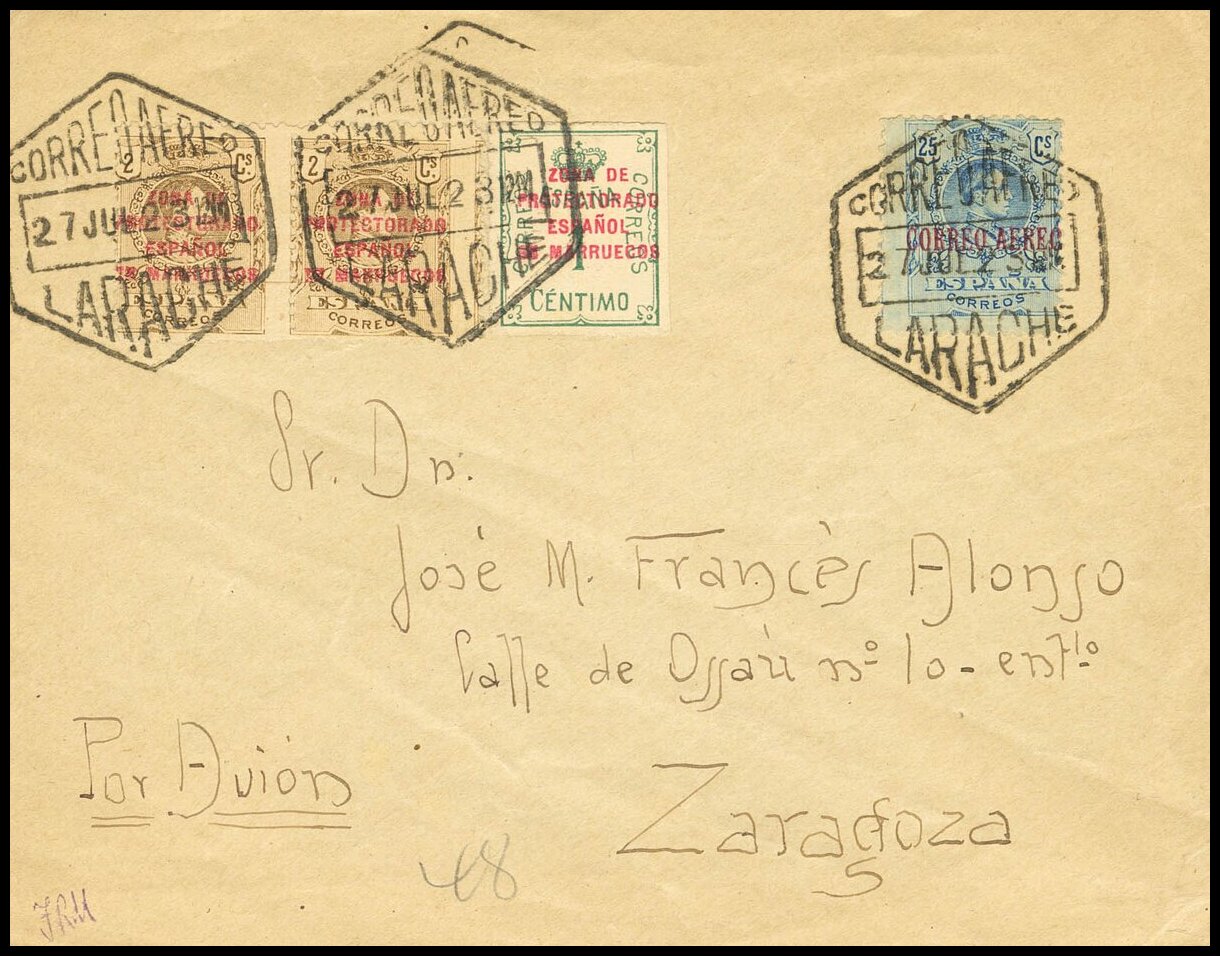 CORREO AEREO
27 JUL 23
LARACHE
CORREO AEREO
27 JUL 23
LARACHE
2 Cs
ZONA DE
PROTECTORADO
ESPAÑOL
EN MARRUECOS
CORREOS
2 Cs
ZONA DE
PROTECTORADO
ESPAÑOL
EN MARRUECOS
ESPAÑA
CORREOS
ESPAÑA
CORREOS
CORREOS
1
CÉNTIMO
ZONA DE
PROTECTORADO
ESPAÑOL
EN MARRUECOS
25 Cs
CORREO AEREO
ESPAÑA
CORREOS
CORREO AEREO
27 JUL 23
LARACHE
Sr. Dn.
José M. Francès Alonso
Calle de Ossaú nº 10 - entlo
Por Avión
Zaragoza
48